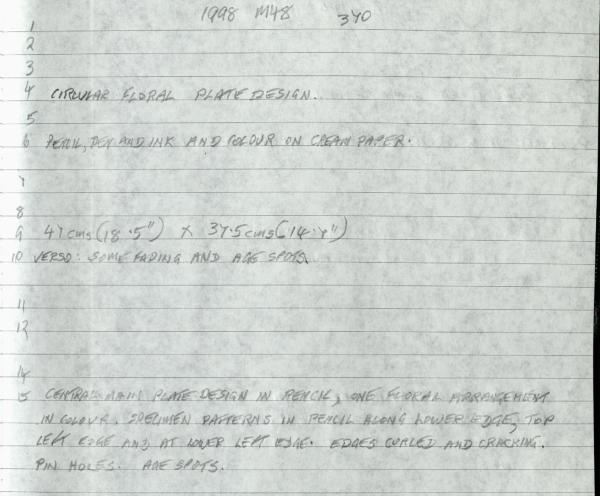 1998 M48 340
1
2
3
4 CIRCULAR FLORAL PLATE DESIGN.
5
6 PENCIL, PEN AND INK AND COLOUR ON CREAM PAPER.
7
8
9 47 cms (18.5") X 37.5 cms (14.7")
10 VERSO: SOME FADING AND AGE SPOTS.
11
12
14
15 CENTRAL MAIN PLATE DESIGN IN PENCIL, ONE FLORAL ARRANGEMENT
IN COLOUR. SPECIMEN PATTERNS IN PENCIL ALONG LOWER EDGE, TOP
LEFT EDGE AND AT LOWER LEFT EDGE. EDGES CURLED AND CRACKING.
PIN HOLES. AGE SPOTS.